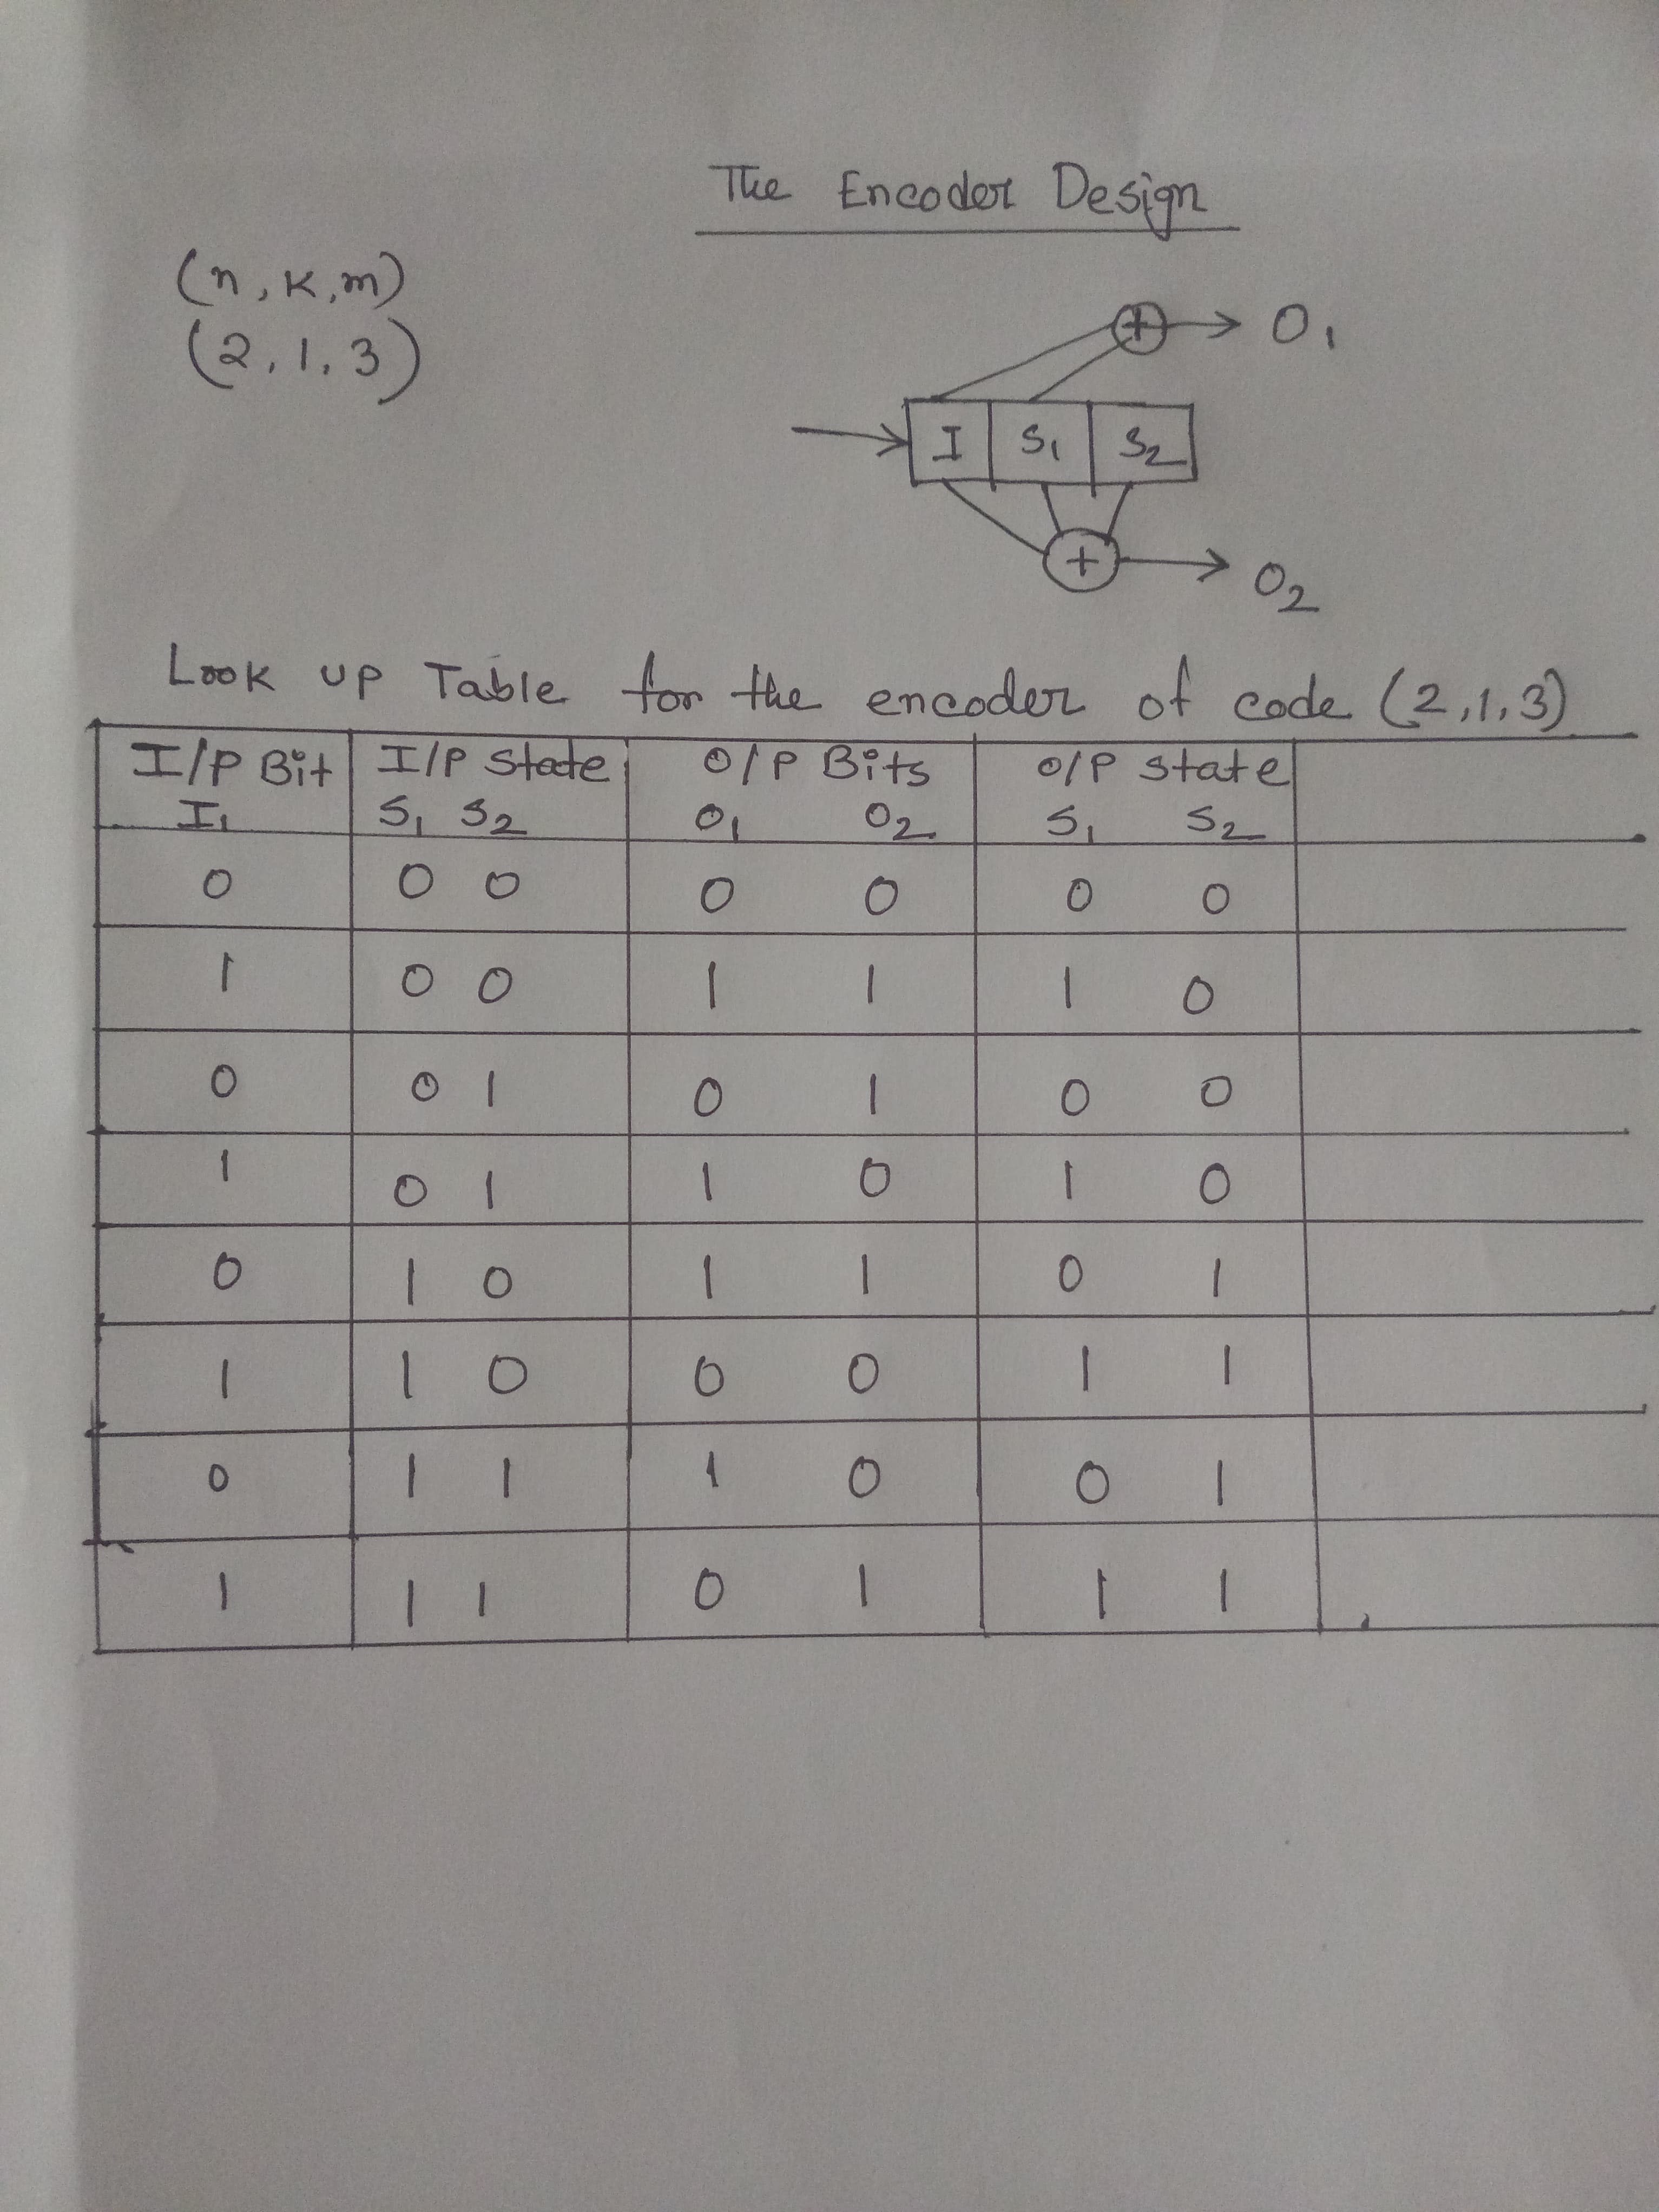 The Encoder Design
(n, k, m)
(2, 1, 3)
+ → O1
→ I S1 S2
+ → O2
Look up Table for the encoder of code (2,1,3)
I/P Bit I/P State O/P Bits O/P state
I1 S1 S2 O1 O2 S1 S2
0 0 0 0 0 0 0
1 0 0 1 1 1 0
0 0 1 0 1 0 0
1 0 1 1 0 1 0
0 1 0 1 1 0 1
1 1 0 0 0 1 1
0 1 1 1 0 0 1
1 1 1 0 1 1 1